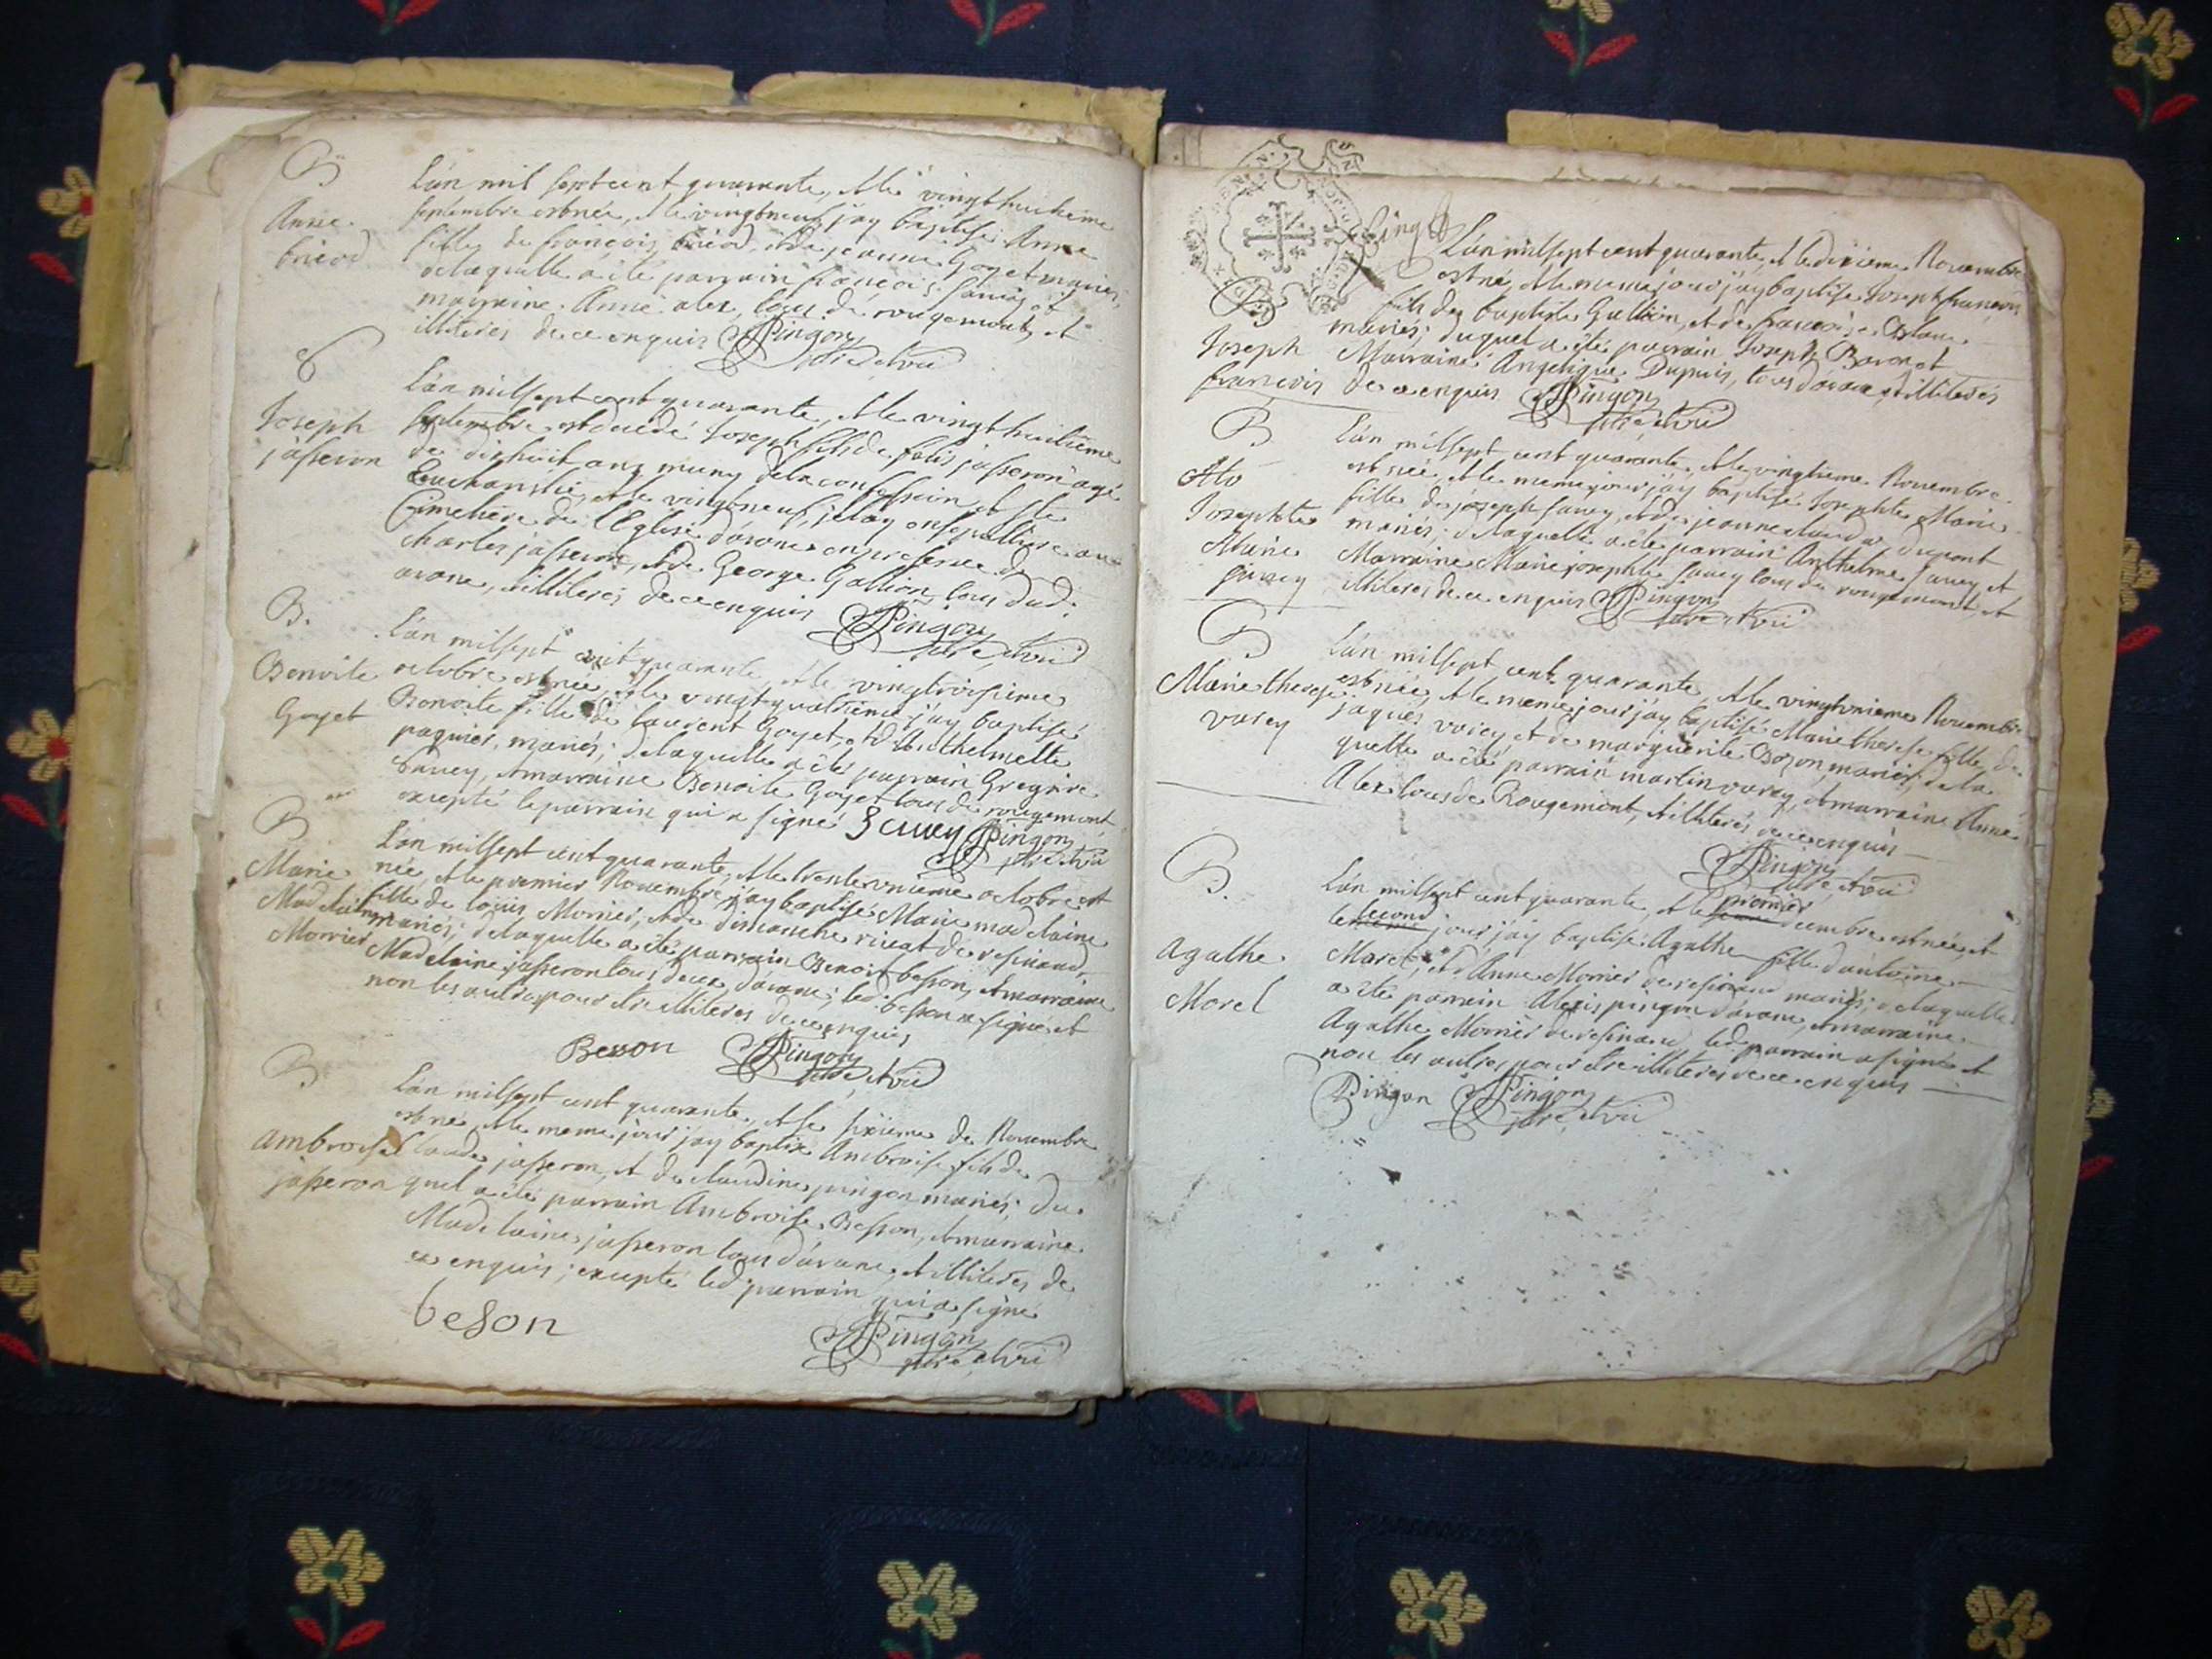 B
Anne
briord
L'an mil sept cent quarante, et le vingt huitieme
septembre est née, et le vingt neuf j'ay baptisé Anne
fille de françois briord, et de jeanne Goyet mariés,
delaquelle a été parrain françois et
marraine Anne alex, tous de rougemont, et
illiterés de ce enquis Pingon
Joseph
jasseron
L'an mil sept cent quarante, et le vingt huitième
septembre est decedé Joseph fils de jasseron agé
de dixhuit ans muny de la confession et ste
Eucharistie, et le vingt neuf, je lay ensepulturé au
Cimetiere de l'Eglise d'arane en presence de
Charles jasseron, et de George Gallion tous dud.
arane, et illiterés de ce enquis Pingon
B.
Benoite
Goyet
L'an mil sept cent quarante, et le vingt troisieme
octobre est née, et le vingt quatrieme j'ay baptisé
Benoite fille de laurent Goyet, et d'Anthelmette
paquier, mariés; delaquelle a été parrain Gregoire
Savey, et marraine Benoite Goyet tous de rougemont
excepté le parrain qui a signé Savey Pingon
B
Marie
Madelaine
Morrier
L'an mil sept cent quarante, et le trente unieme octobre est
née, et le premier Novembre j'ay baptisé Marie madelaine
fille de louis Morrier, et de dimanche de resinand,
mariés; delaquelle a été parrain Benoit besson, et marraine
Madelaine jasseron tous deux d'arane; led. besson a signé et
non les autres pour etre illiterés de ce enquis
Besson Pingon
B
Ambroise
jasseron
L'an mil sept cent quarante, et le sixieme de Novembre
est né, et le meme jour j'ay baptisé Ambroise fils de
Claude jasseron, et de claudine pingon mariés; du
quel a été parrain Ambroise Besson, et marraine
Madelaine jasseron tous d'arane, et illiterés de
ce enquis; excepté led. parrain qui a signé
beson Pingon
B
Joseph
francois
L'an mil sept cent quarante, et le dixieme Novembre
est né, et le meme jour j'ay baptisé Joseph francois
fils de baptiste Gallion, et de francoise
mariés; duquel a été parrain Joseph Baron et
Marraine Angelique Dupuis, tous d'arane, et illiterés
de ce enquis Pingon
B
Josephte
Marie
Savey
L'an mil sept cent quarante, et le vingtieme Novembre
est née, et le meme jour j'ay baptisé Josephte Marie
fille de joseph savey, et de jeanne claudine dupont
mariés; delaquelle a été parrain Anthelme Savey et
Marraine Marie josephte savey tous de rougemont, et
illiterés de ce enquis Pingon
B
Marie therese
varey
L'an mil sept cent quarante, et le vingt unieme Novembre
est née, et le meme jour j'ay baptisé Marie therese fille de
jaques varey et de marguerite Bozon, mariés; de la
quelle a été parrain martin varey, et marraine Anne
Alex tous de Rougemont, et illiterés de ce enquis
Pingon
B.
Agathe
Morel
L'an mil sept cent quarante, et le premier decembre est née, et
le second jour j'ay baptisé Agathe fille d'antoine
Morel, et d'Anne Morrier de resinand mariés; delaquelle
a été parrain Alexis pingon d'arane, et marraine
Agathe Morrier de resinand led. parrain a signé et
non les autres pour etre illiterés de ce enquis
Pingon Pingon